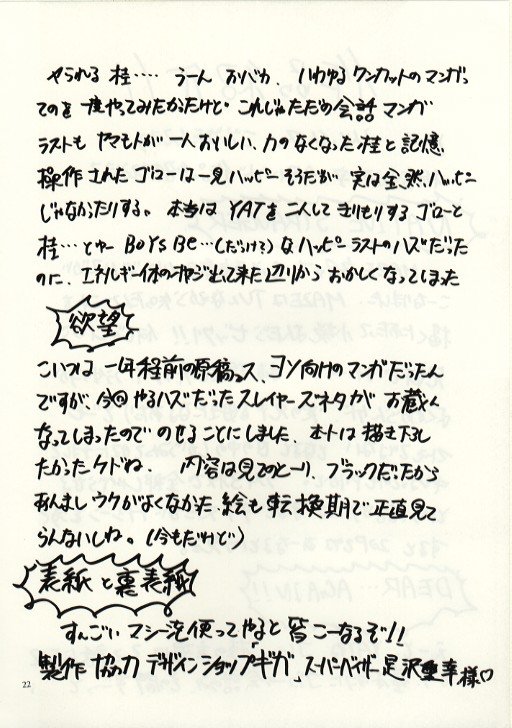 やられる 桂‥‥ うーん おバカ、 いわゆるワンカットのマンガっ
てのを一度やってみたかったけど これじゃただの会話マンガ
ラストも ヤマモトが一人おいしい、力のなくなった桂と記憶
操作されたゴローは一見ハッピーそうだが 実は全然、ハッピー
じゃなかったりする。 本当は YATを二人して きりもりするゴローと
桂…とゆー BOYS BE…(だっけ?) なハッピーラストのハズだった
のに、エネルギー体のオヤジ出て来た辺りから おかしくなってしまった
欲望
こいつは 一年程前の原稿っス、ヨソ向けのマンガだったん
ですが、今回やるハズだったスレイヤーズネタが お蔵入
なってしまったので のせることにしました、ホントは描き下し
たかったケドね。 内容は見てのとーり、ブラックだったから
あんましウケがよくなかった、絵も転換期で正直見て
らんないしね。(今もだけど)
表紙と裏表紙
すんごい マシーン使ってやると 皆こーなるぞ!!
製作 協力 デザインショップ「ギガ」 スーパーバイザー 足沢重幸様♡
22